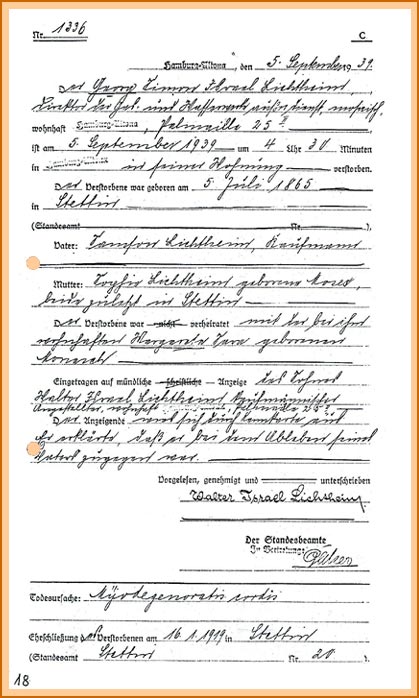 Nr. 1336 C
Hamburg-Altona, den 5. September 1939.
Der Georg Simon Israel Lichtheim,
Direktor der Gas- und Wasserwerke außer Dienst, mosaisch,
wohnhaft Hamburg-Altona, Palmaille 25
ist am 5. September 1939 um 4 Uhr 30 Minuten
in Hamburg-Altona in seiner Wohnung verstorben.
Der Verstorbene war geboren am 5. Juli 1865
in Stettin
(Standesamt Nr. ).
Vater: Lichtheim, Kaufmann
Mutter: Sophie Lichtheim geborene Moses,
beide zuletzt in Stettin
Der Verstorbene war nicht verheiratet mit der bei ihm
wohnhaften Margarete Sara geborenen
Eingetragen auf mündliche schriftliche Anzeige des Sohnes
Walter Israel Lichtheim, kaufmännischer
Angestellter, wohnhaft Palmaille 25
Der Anzeigende wies sich durch Kennkarte aus.
Er erklärte, daß er bei dem Ableben seines
Vaters zugegen war.
Vorgelesen, genehmigt und unterschrieben
Walter Israel Lichtheim
Der Standesbeamte
In Vertretung:
Todesursache: Myodegeneratio cordis
Eheschließung des Verstorbenen am 16.1.1919 in Stettin
(Standesamt Stettin Nr. 20 ).
18